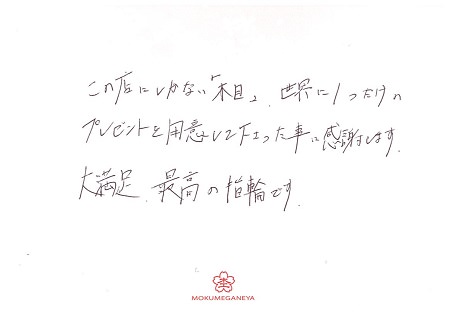 この店にしかない「木目」、世界に1つだけの
プレゼントを用意して下さった事に感謝します。
大満足、最高の指輪です。
MOKUMEGANEYA